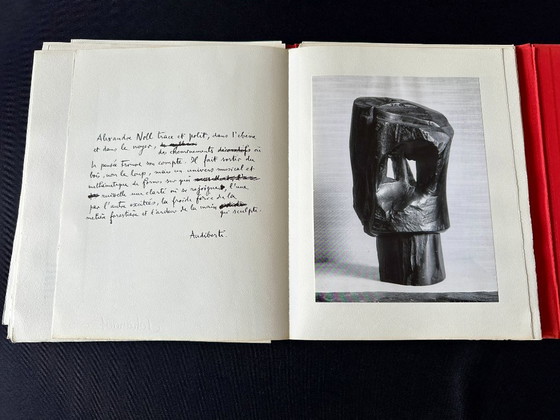 Alexandre Noll trace et polit, dans l'ébène
et dans le noyer,
des cheminements où
la pensée trouve son compte. Il fait sortir du
bois, non le loup, mais un univers musical et
mathématique de formes sur qui
ruisselle une clarté où se rejoignent, l'une
par l'autre excitées, la froide force de la
matière forestière et l'ardeur de la main
qui sculpte.
Audiberti